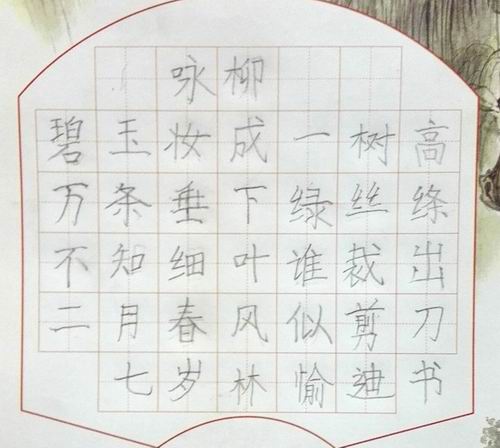 咏柳
碧玉妆成一树高
万条垂下绿丝绦
不知细叶谁裁出
二月春风似剪刀
七岁林愉迪书